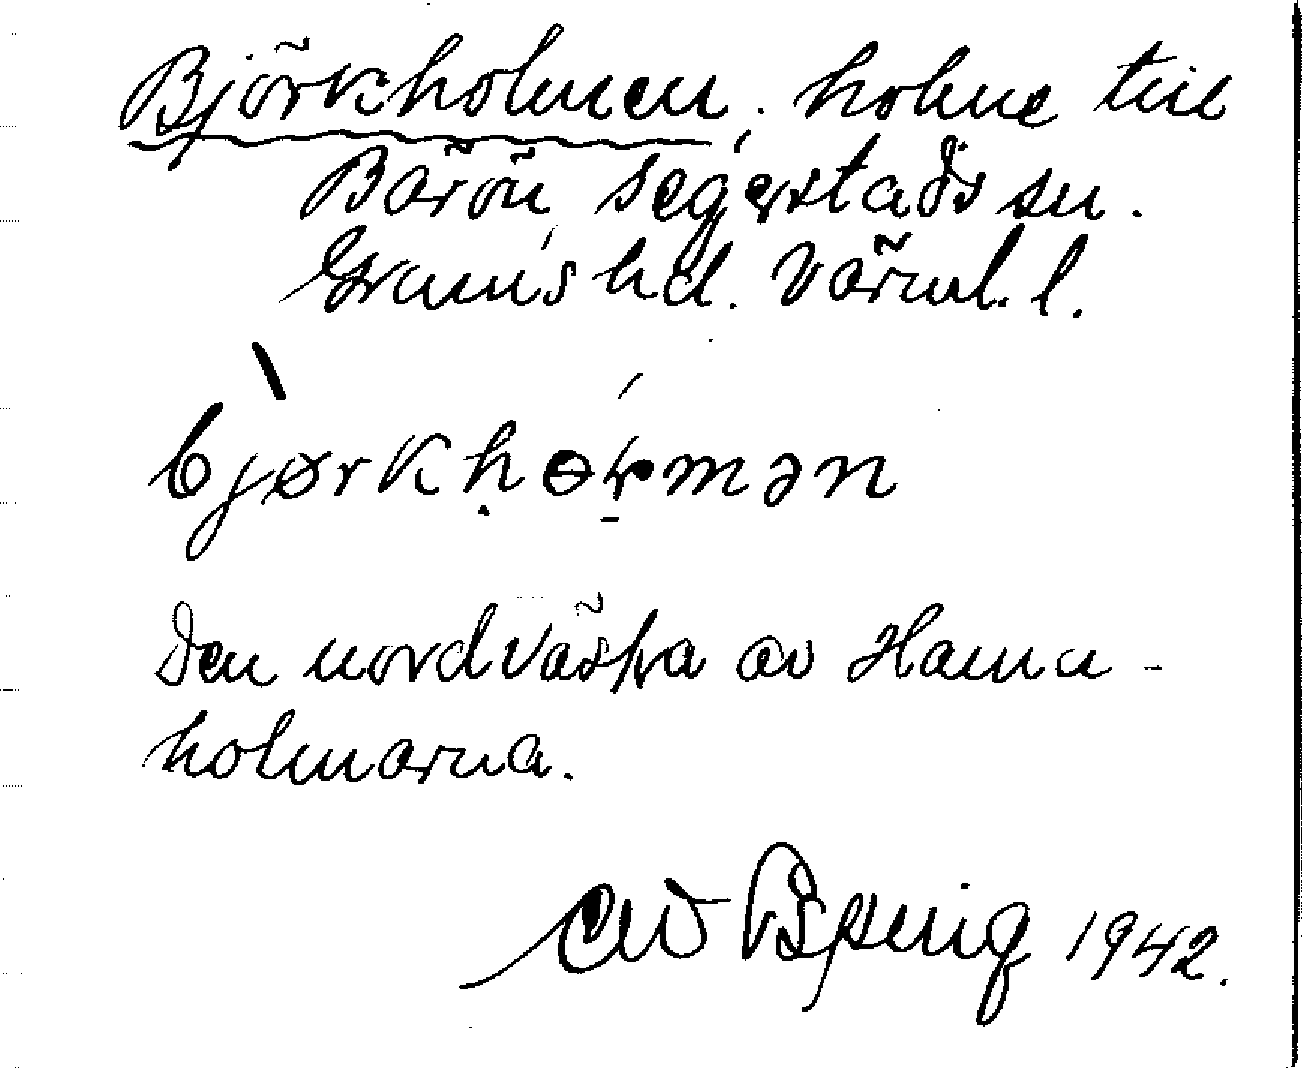 Björkholmen, holme till
Bärön, Segerstads sn.
Grums hd. Värml. l.
bjørkhɵɽmən
Den nordvästra av Hamn-
holmarna.
1942.